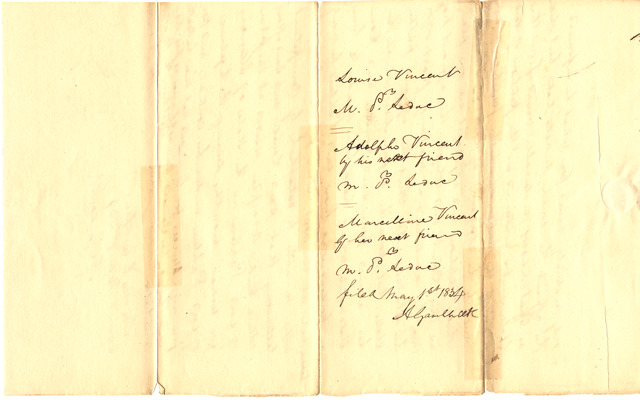 Louise Vincent
vs
M. P. Leduc
Adolphe Vincent
by his next friend
vs
M. P. Leduc
Marcelline Vincent
by her next friend
vs
M. P. Leduc
filed May 1st 1834
Clk